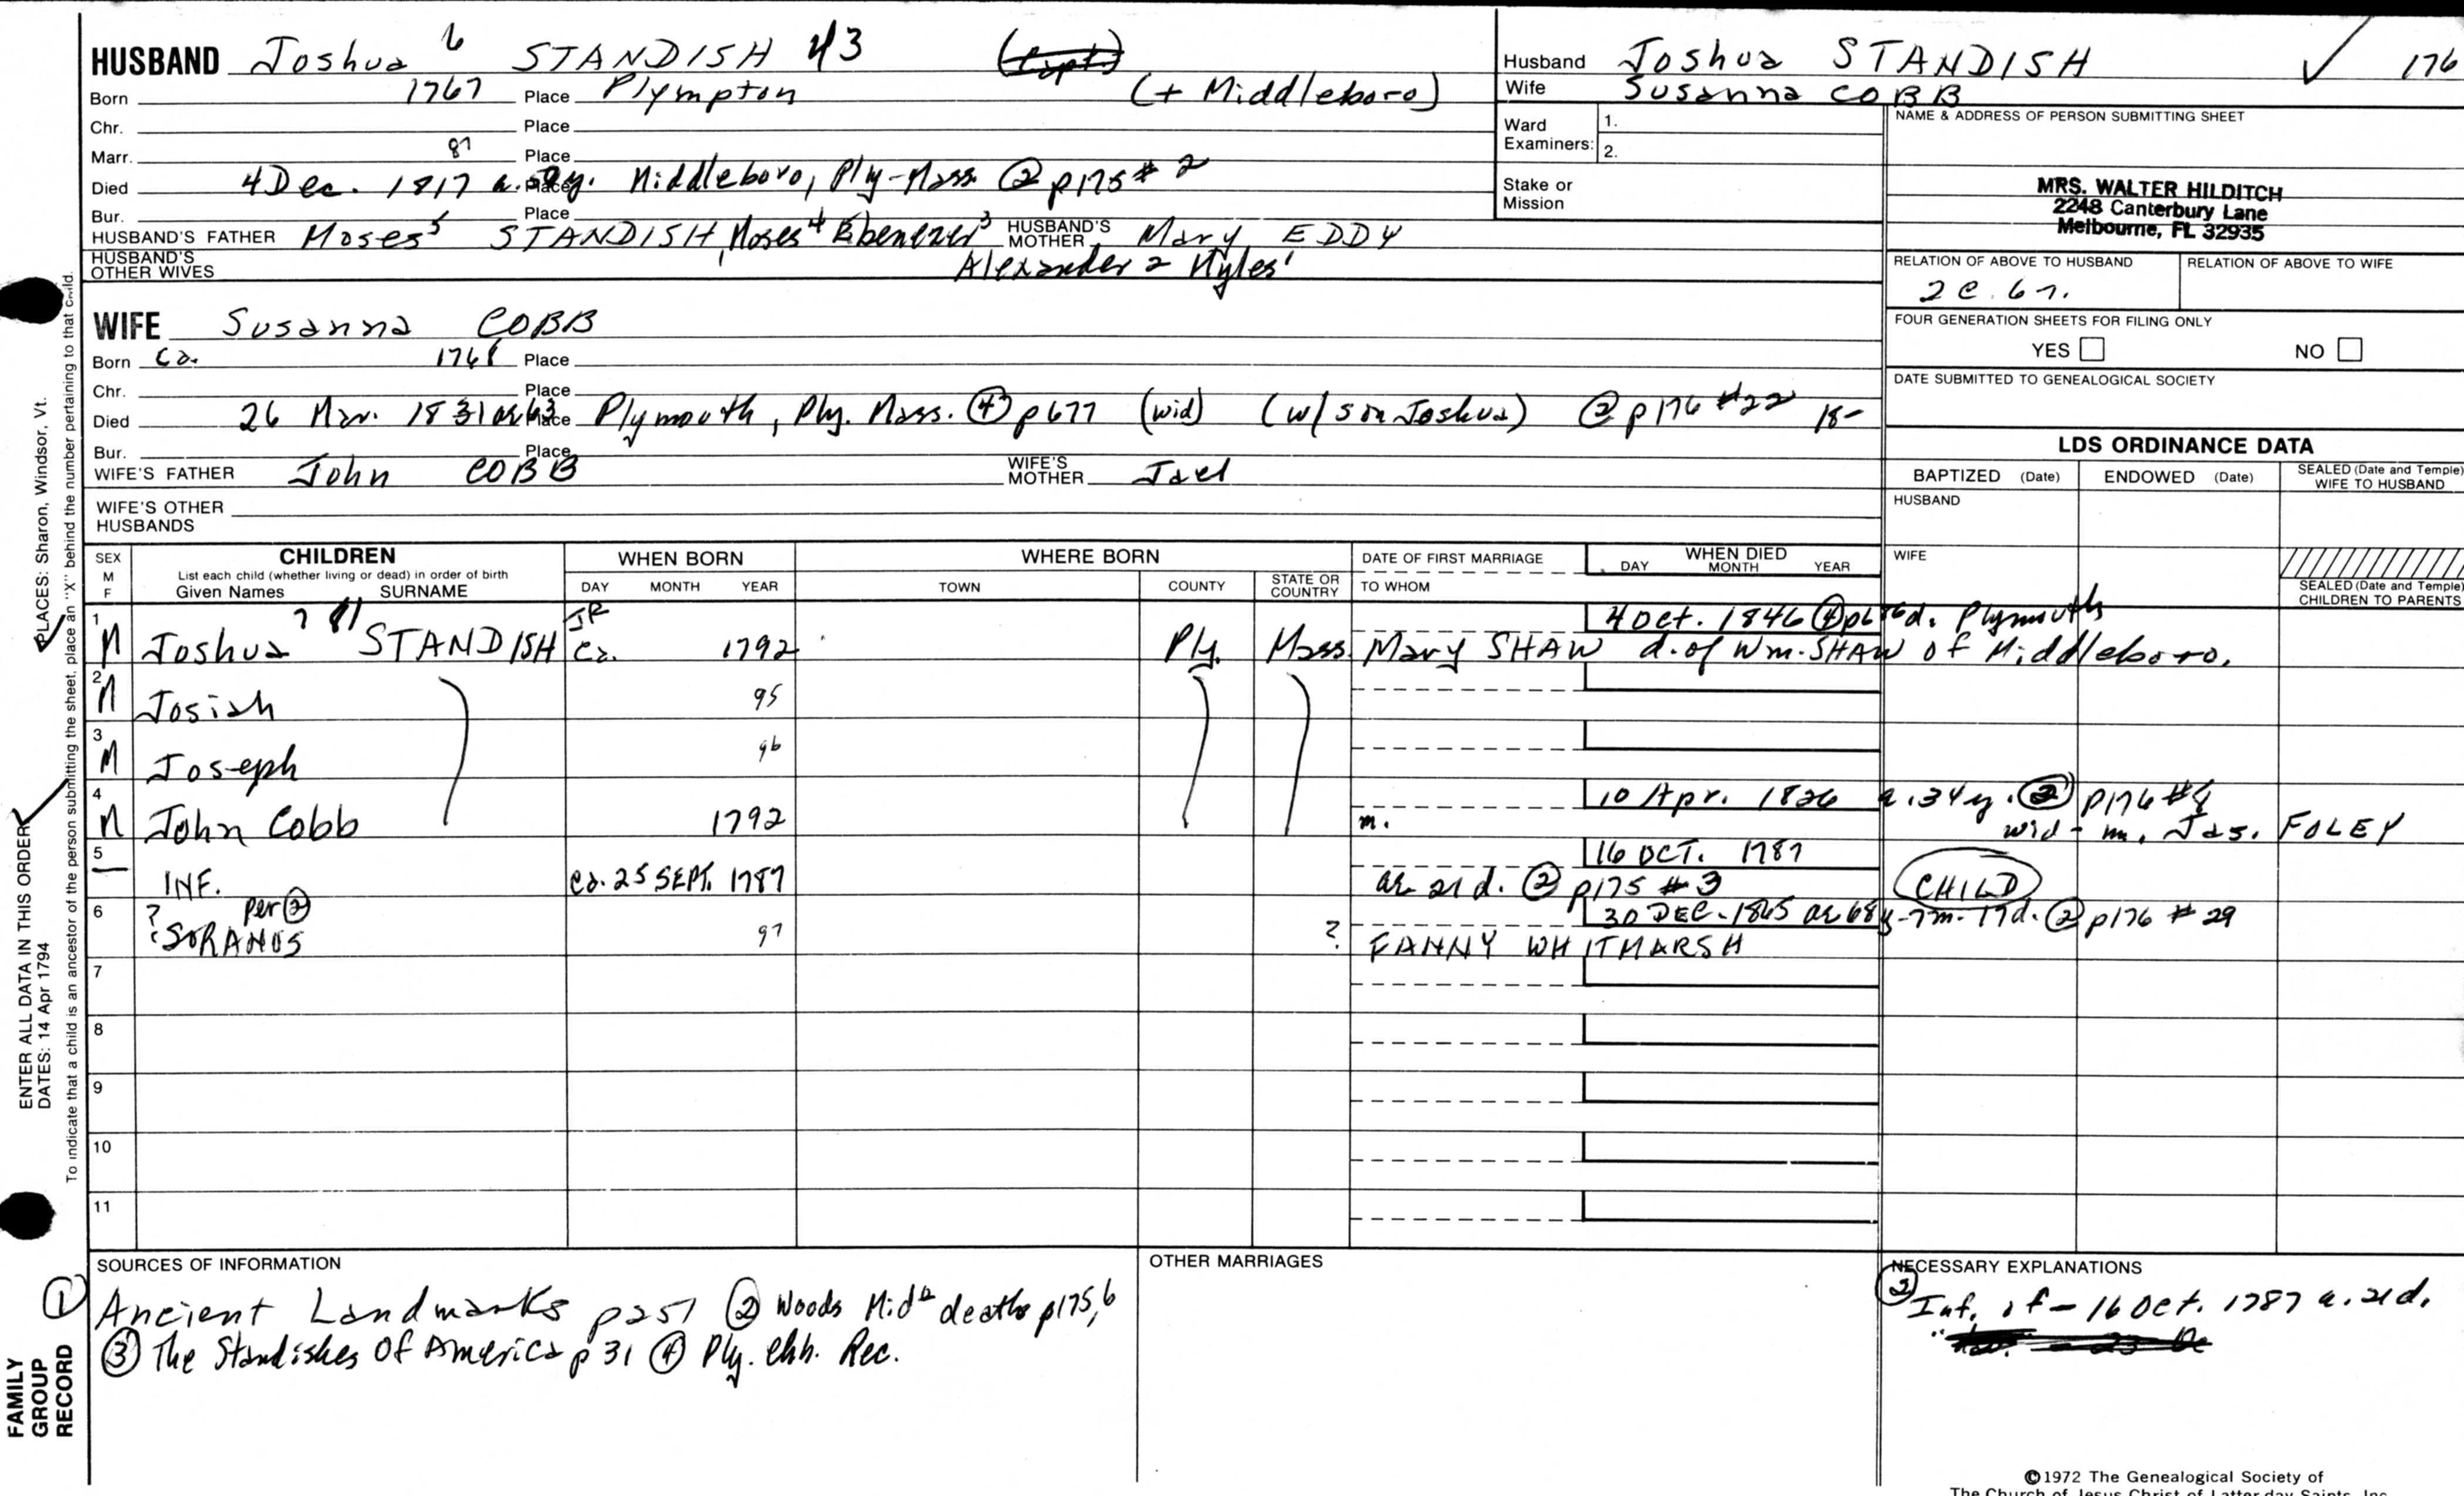 HUSBAND Joshua 6 STANDISH 43
Born 1767 Place Plympton (+ Middleboro)
Chr. Place
Marr. 87 Place
Died 4 Dec. 1817 a. 50y. Place Middleboro, Ply-Mass. ② p175 # 2
Bur. Place
HUSBAND'S FATHER Moses5 STANDISH, Moses4 Ebenezer3 HUSBAND'S MOTHER Mary EDDY
HUSBAND'S OTHER WIVES Alexander2 Myles1
Husband Joshua STANDISH ✓ 176
Wife Susanna COBB
Ward Examiners: 1.
2.
Stake or Mission
NAME & ADDRESS OF PERSON SUBMITTING SHEET
MRS. WALTER HILDITCH
2248 Canterbury Lane
Melbourne, FL 32935
RELATION OF ABOVE TO HUSBAND RELATION OF ABOVE TO WIFE
2c. 6r.
FOUR GENERATION SHEETS FOR FILING ONLY
YES NO
DATE SUBMITTED TO GENEALOGICAL SOCIETY
WIFE Susanna COBB
Born ca. 1768 Place
Chr. Place
Died 26 Mar. 1831 ae 63 Place Plymouth, Ply. Mass. ④ p677 (wid) (w/ son Joshua) ② p176 #22
Bur. Place
WIFE'S FATHER John COBB WIFE'S MOTHER Jael
WIFE'S OTHER HUSBANDS
LDS ORDINANCE DATA
BAPTIZED (Date) ENDOWED (Date) SEALED (Date and Temple) WIFE TO HUSBAND
HUSBAND
WIFE
SEALED (Date and Temple) CHILDREN TO PARENTS
SEX M F CHILDREN WHEN BORN WHERE BORN DATE OF FIRST MARRIAGE WHEN DIED
List each child (whether living or dead) in order of birth
Given Names SURNAME DAY MONTH YEAR TOWN COUNTY STATE OR COUNTRY TO WHOM DAY MONTH YEAR
4 Oct. 1846 ④ p676 d. Plymouth
1 M Joshua 7 81 STANDISH JR ca. 1792 Ply. Mass. Mary SHAW d. of Wm. SHAW of Middleboro.
2 M Josiah 95
3 M Joseph 96
10 Apr. 1826 a. 34y. ② p176 #8
4 M John Cobb 1792 m. wid - m. Jas. FOLEY
16 OCT. 1787
5 — INF. ca. 25 SEPT. 1787 ae 21 d. ② p175 # 3 CHILD
30 DEC. 1865 ae 68y-7m-17d. ② p176 # 29
6 ? per ② SORANUS 97 ? FANNY WHITMARSH
7
8
9
10
11
SOURCES OF INFORMATION OTHER MARRIAGES NECESSARY EXPLANATIONS
① Ancient Landmarks p251 ② Woods Mid deaths p175,6
③ The Standishes Of America p 31 ④ Ply. chh. Rec.
② Inf. of — 16 Oct. 1787 a. 21d.
ENTER ALL DATA IN THIS ORDER PLACES: Sharon, Windsor, Vt.
DATES: 14 Apr 1794
To indicate that a child is an ancestor of the person submitting the sheet, place an "X" behind the number pertaining to that child.
FAMILY GROUP RECORD
©1972 The Genealogical Society of
The Church of Jesus Christ of Latter-day Saints, Inc.